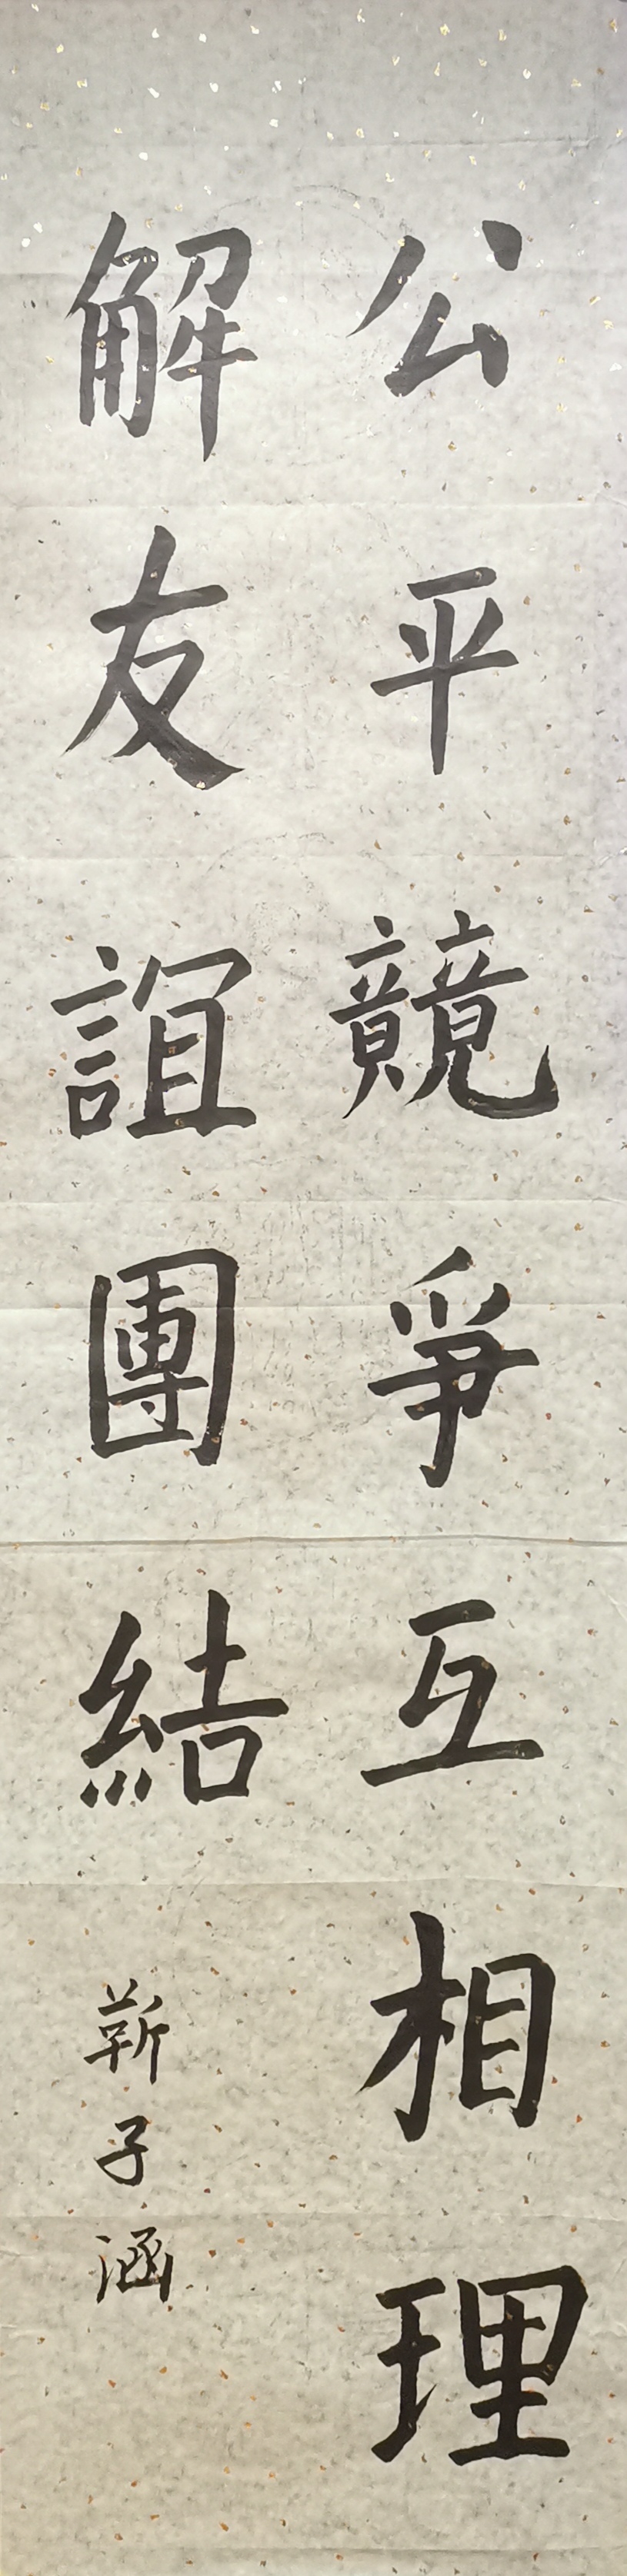 公平競爭互相理
解友誼團結
靳子涵